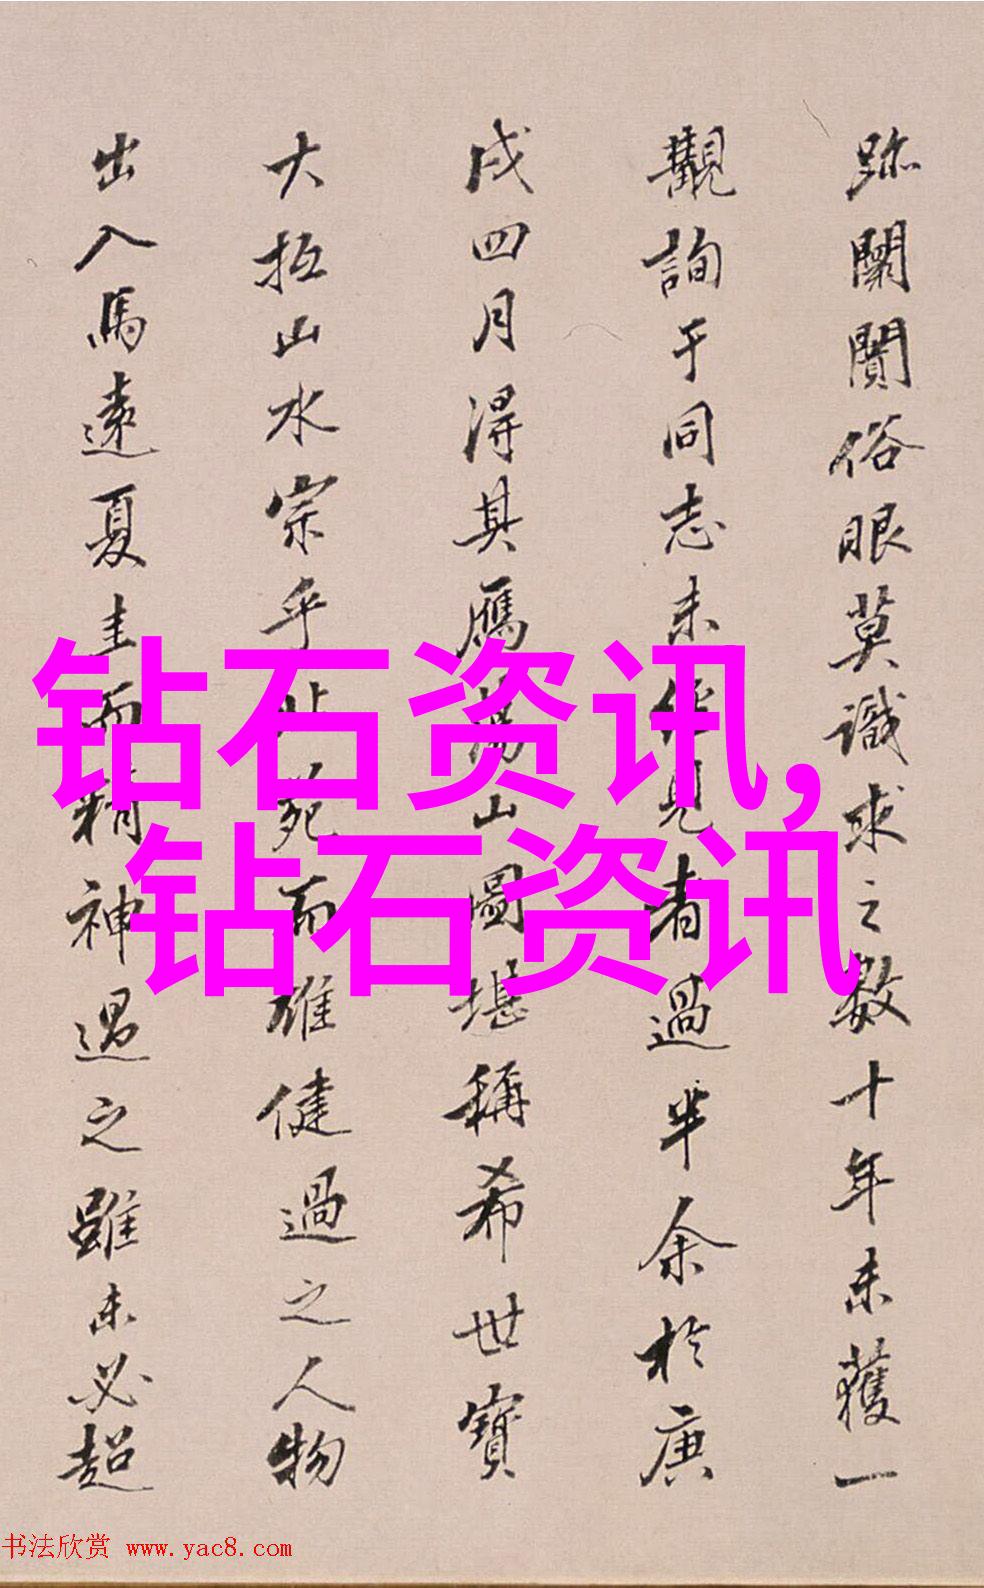 跡闤闠俗眼莫識求之數十年未獲一
觀詢于同志未見者過半余於庚
戌四月得其鴈蕩山圖堪稱希世寶
大抵山水宗乎北苑而雄健過之人物
出入馬遠夏圭而精神過之雖未必超
钻石资讯,
钻石资讯
书法欣赏 www.yac8.com